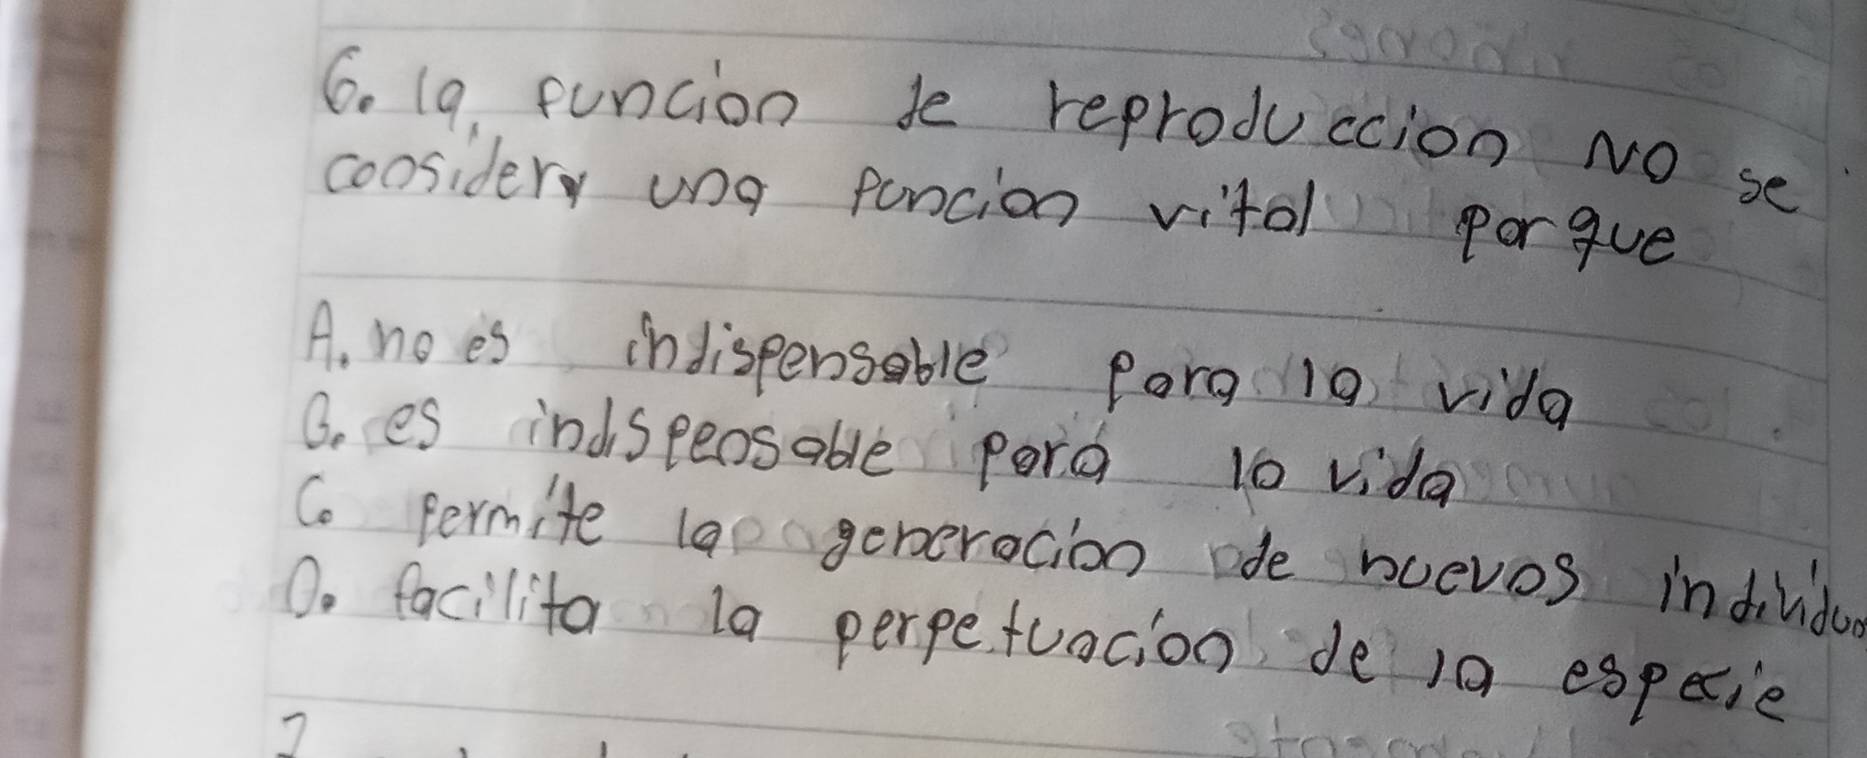 6. la funcion de reproduccion NO se
considera una funcion vital porque
A. no es indispensable para la vida
B. es indispensable para la vida
C. permite la generacion de nuevos individuo
D. facilita la perpetuacion de la especie
7